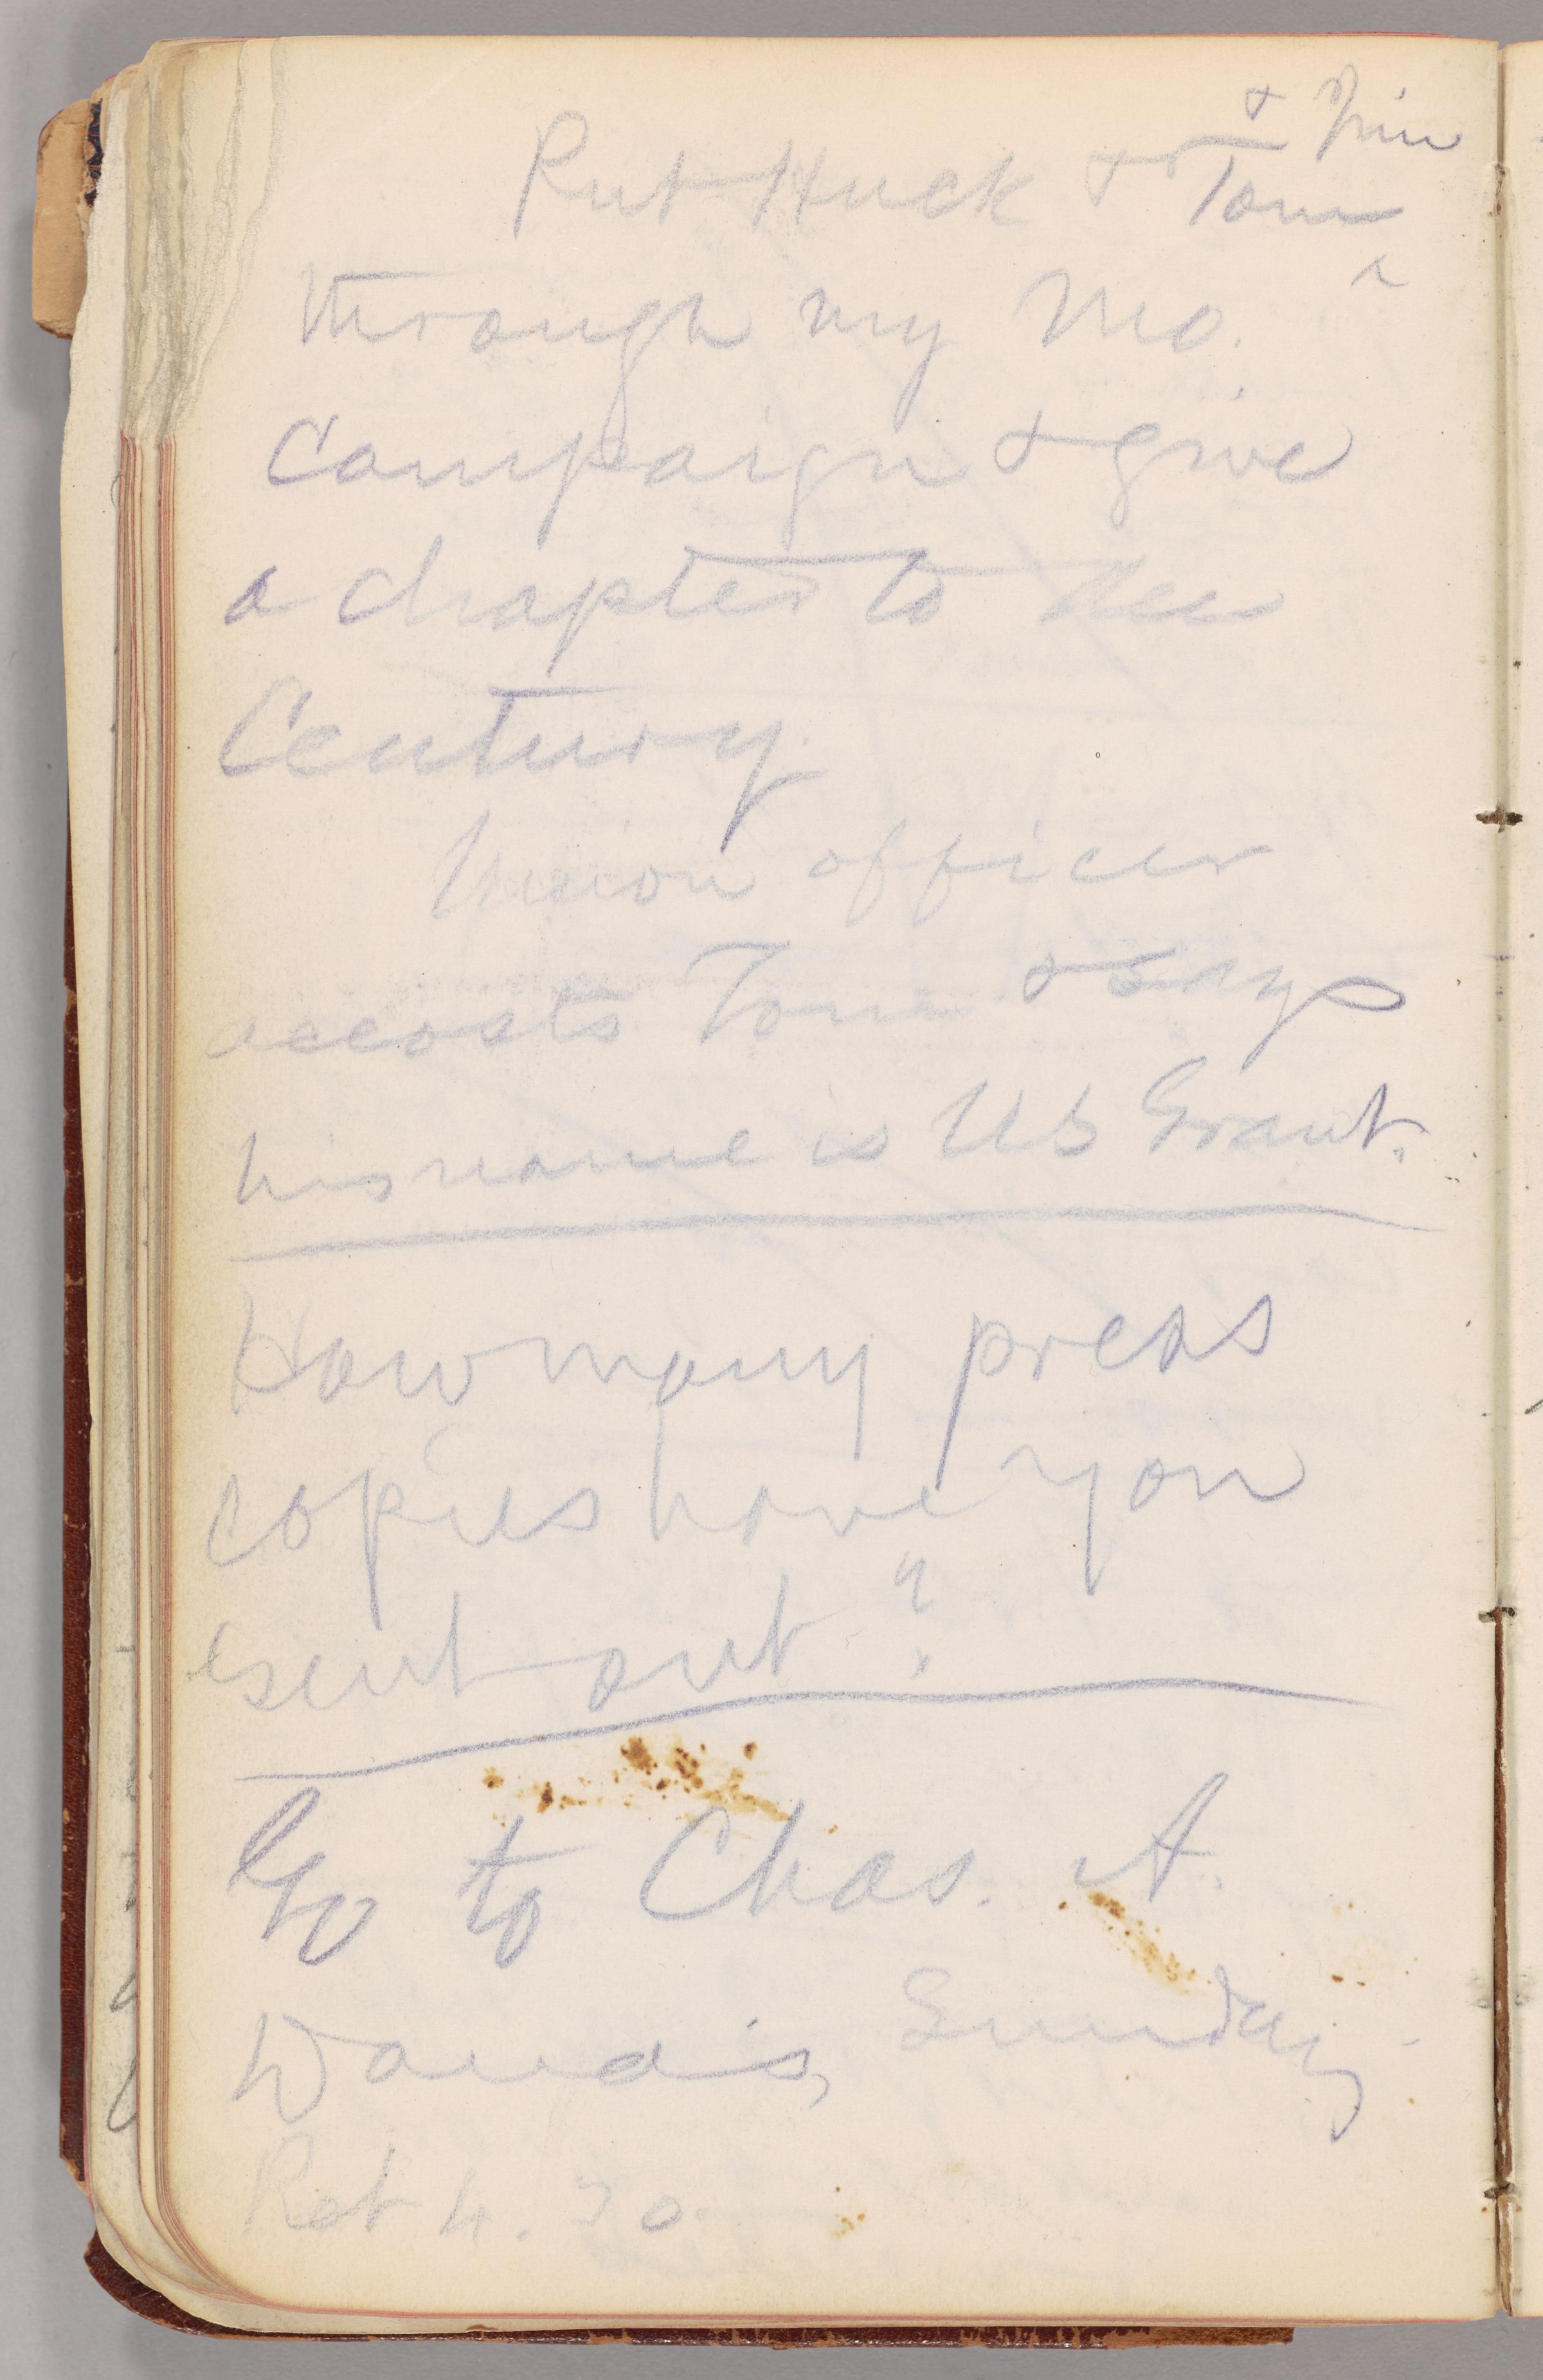 Put Huck & Tom & Jim
through my Mo.
Campaign & give
a chapter to the
Century.
Union officer
accosts Tom & says
his name is US Grant.
How many press
copies have you
sent out?
Go to Chas. A.
Dana's, Sunday